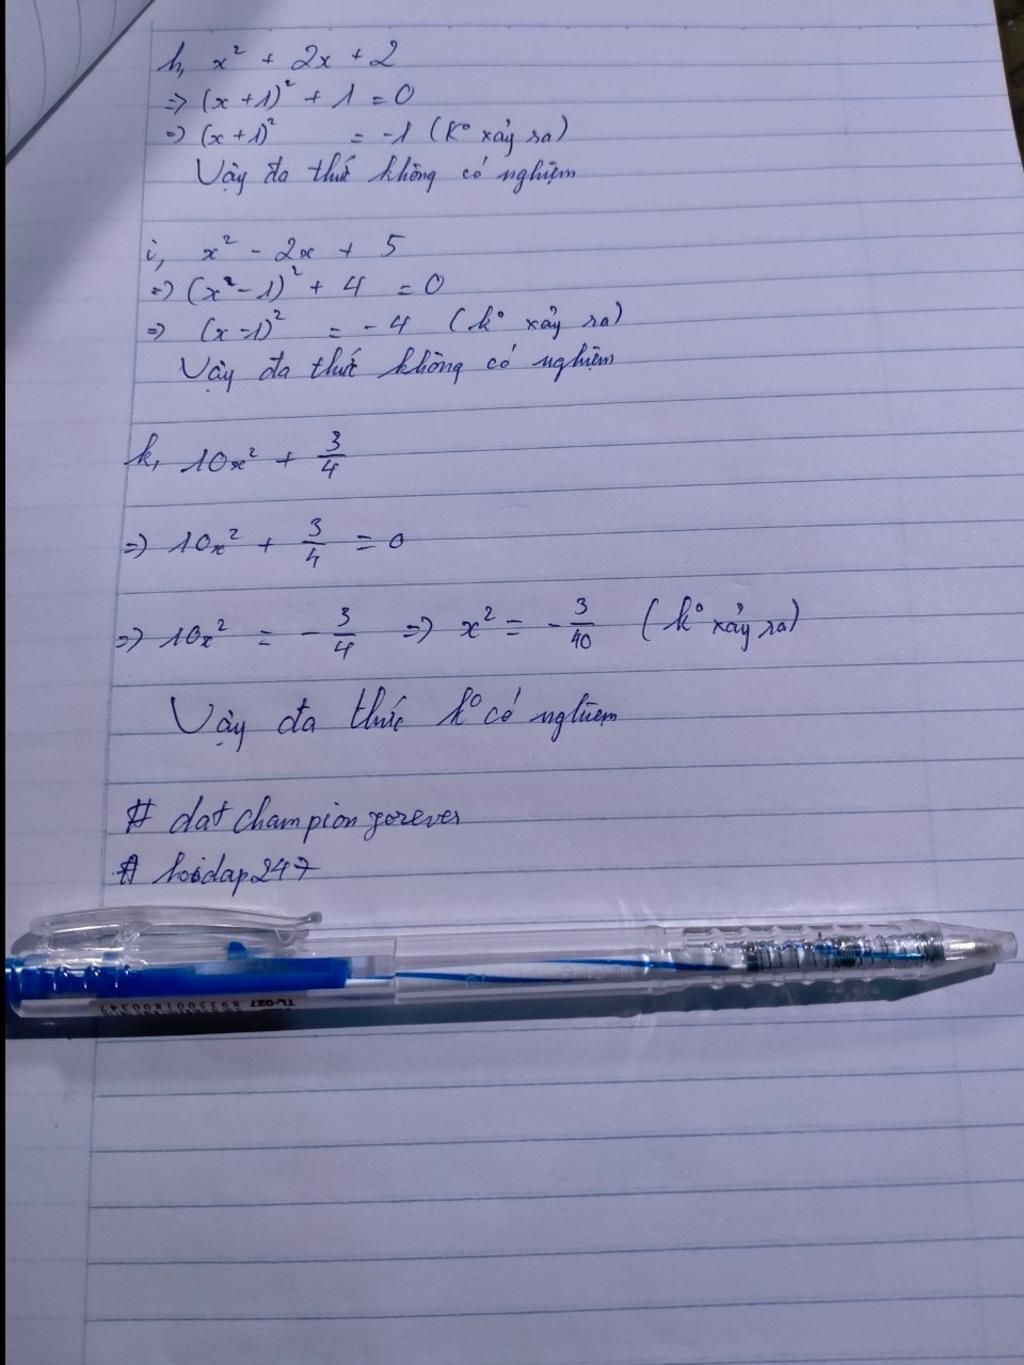 h, x² + 2x + 2
=> (x + 1)² + 1 = 0
=> (x + 1)² = -1 (k° xảy ra)
Vậy đa thức không có nghiệm
i, x² - 2x + 5
=> (x - 1)² + 4 = 0
=> (x - 1)² = - 4 (k° xảy ra)
Vậy đa thức không có nghiệm
k, 10x² + 3/4
=> 10x² + 3/4 = 0
=> 10x² = - 3/4 => x² = - 3/40 (k° xảy ra)
Vậy đa thức k° có nghiệm
# dat champion forever
# hoidap247
TL-027 8935001800349